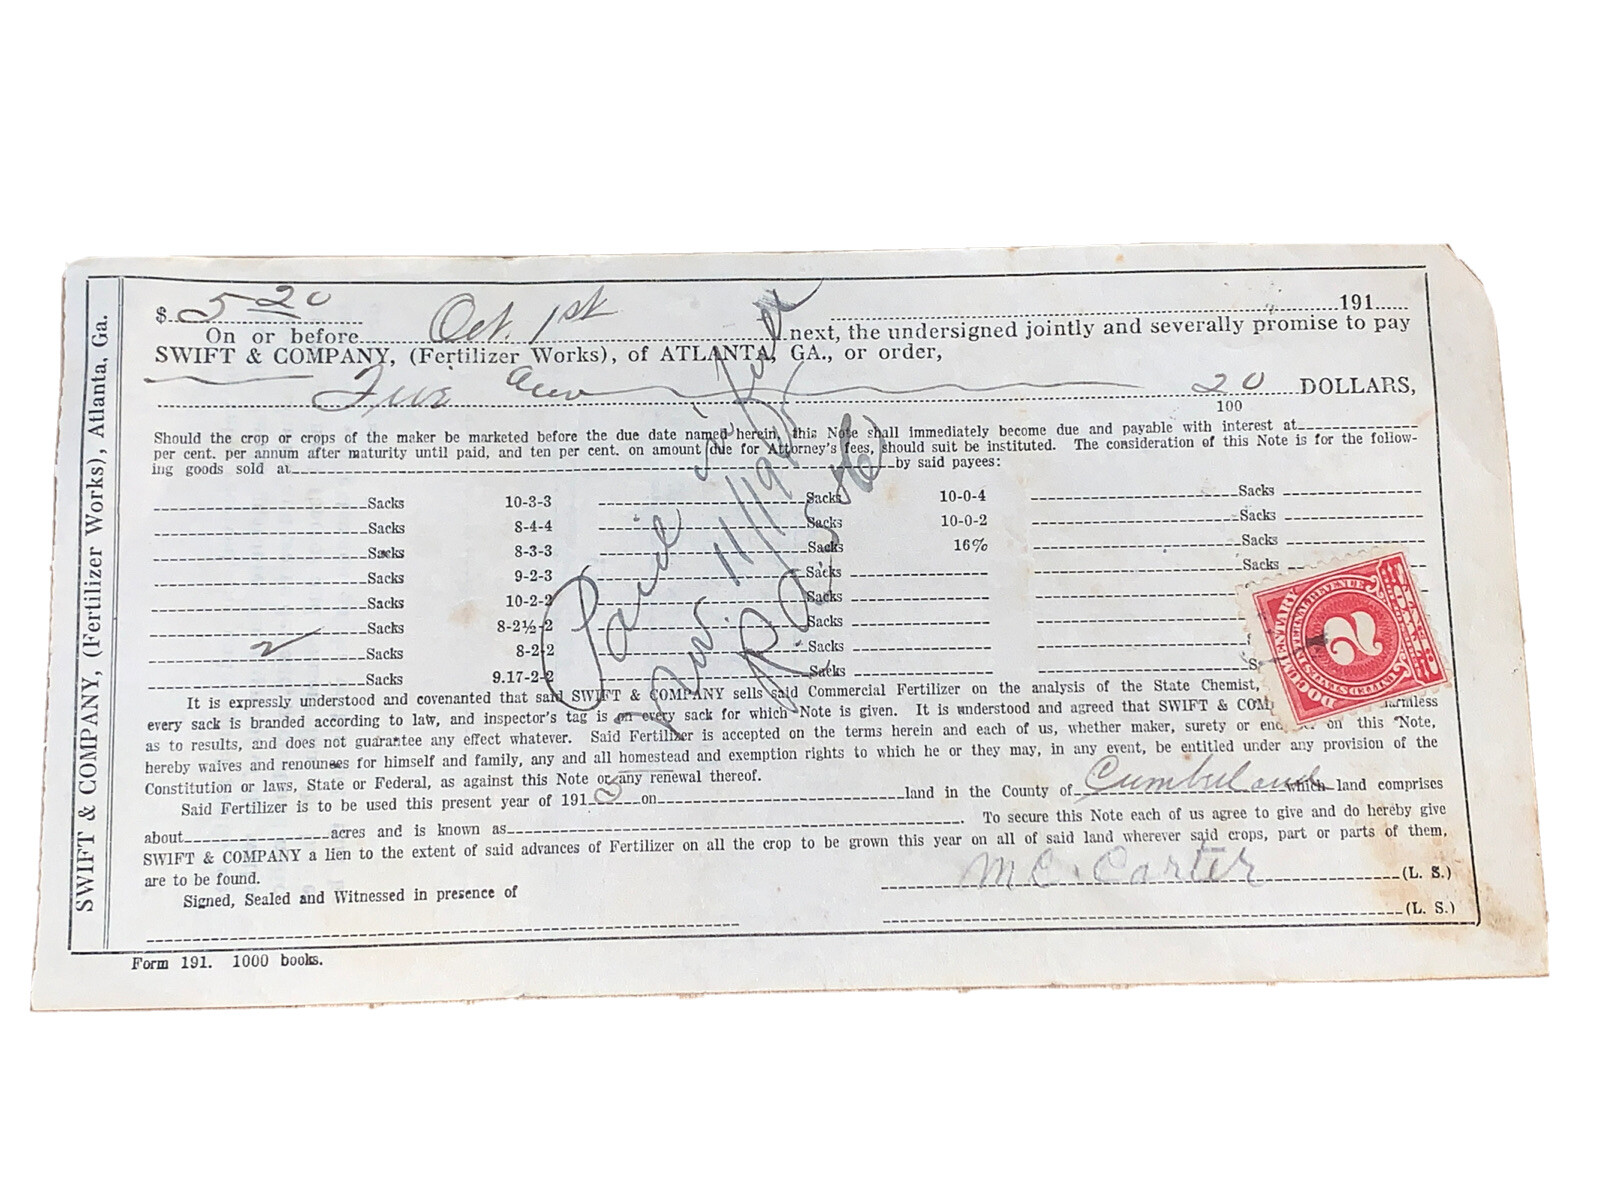 SWIFT & COMPANY, (Fertilizer Works), Atlanta, Ga.
$ 5 20 191
On or before Oct. 1st next, the undersigned jointly and severally promise to pay
SWIFT & COMPANY, (Fertilizer Works), of ATLANTA, GA., or order,
Five and 20 DOLLARS,
100
Should the crop or crops of the maker be marketed before the due date named herein, this Note shall immediately become due and payable with interest at
per cent. per annum after maturity until paid, and ten per cent. on amount due for Attorney's fees, should suit be instituted. The consideration of this Note is for the follow-
ing goods sold at by said payees:
Sacks 10-3-3 Sacks 10-0-4 Sacks
Sacks 8-4-4 Sacks 10-0-2 Sacks
Sacks 8-3-3 Sacks 16% Sacks
Sacks 9-2-3 Sacks Sacks
Sacks 10-2-2 Sacks
Sacks 8-2½-2 Sacks
2 Sacks 8-2-2 Sacks
Sacks 9.17-2-2 Sacks
Paid in full
Nov. 11/1915
DOCUMENTARY
2
It is expressly understood and covenanted that said SWIFT & COMPANY sells said Commercial Fertilizer on the analysis of the State Chemist,
every sack is branded according to law, and inspector's tag is on every sack for which Note is given. It is understood and agreed that SWIFT & COM armless
as to results, and does not guarantee any effect whatever. Said Fertilizer is accepted on the terms herein and each of us, whether maker, surety or en on this Note,
hereby waives and renounces for himself and family, any and all homestead and exemption rights to which he or they may, in any event, be entitled under any provision of the
Constitution or laws, State or Federal, as against this Note or any renewal thereof.
Said Fertilizer is to be used this present year of 1915 on land in the County of Cumberland which land comprises
about acres and is known as . To secure this Note each of us agree to give and do hereby give
SWIFT & COMPANY a lien to the extent of said advances of Fertilizer on all the crop to be grown this year on all of said land wherever said crops, part or parts of them,
are to be found. M C. Carter (L. S.)
Signed, Sealed and Witnessed in presence of
(L. S.)
Form 191. 1000 books.